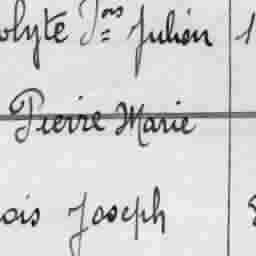 olyte Jⁿˢ Julien 1
Pierre Marie
ois Joseph 8